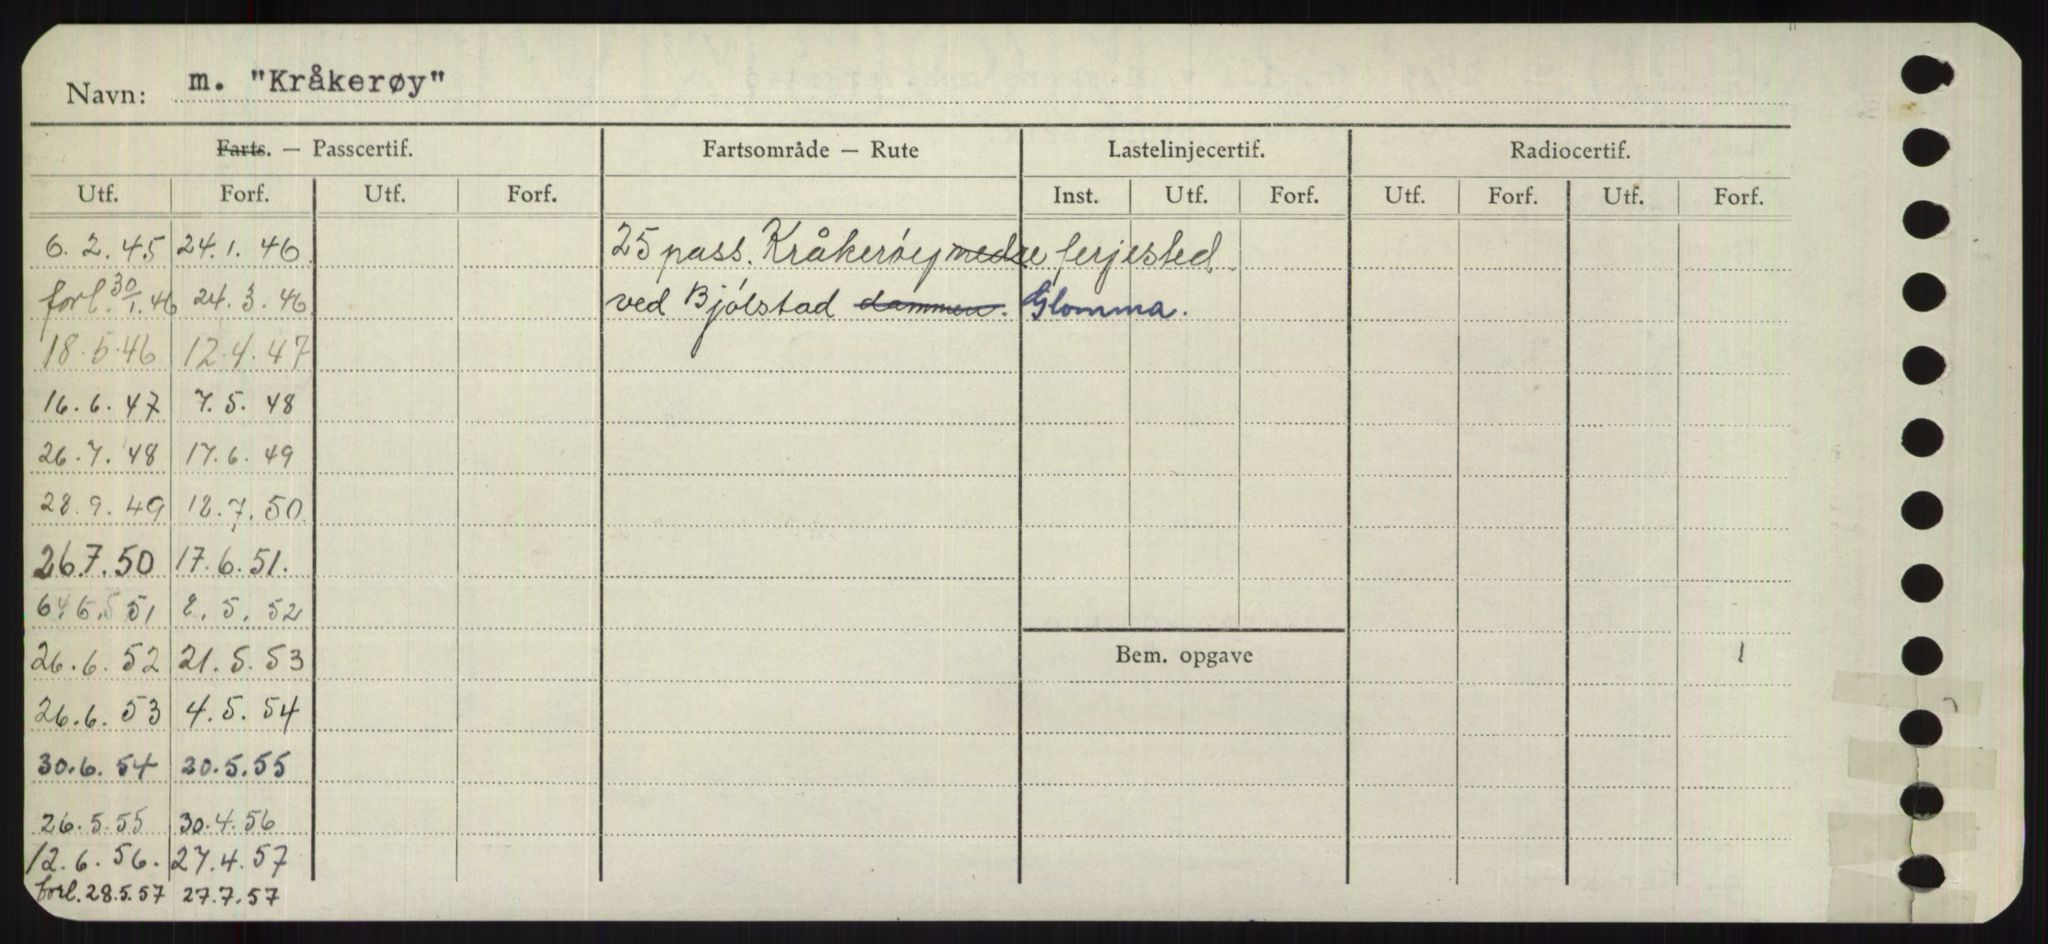 Navn: m. "Kråkerøy"
Farts. — Passcertif. Fartsområde — Rute Lastelinjecertif. Radiocertif.
Utf. Forf. Utf. Forf. Inst. Utf. Forf. Utf. Forf. Utf. Forf.
6. 2. 45 24. 1. 46. 25 pass. Kråkerøy nedre ferjested.
forl. 30/1. 46 24. 3. 46. ved Bjølstad dammen. Glomma.
18. 5. 46 12. 4. 47
16. 6. 47 7. 5. 48
26. 7. 48 17. 6. 49
28. 9. 49 18. 7. 50.
26.7.50 17.6.51.
51 2. 5. 52
26. 6. 52 21. 5. 53
Bem. opgave
26. 6. 53 4. 5. 54
30. 6. 54 20. 5. 55
26. 5. 55 30. 4. 56
12. 6. 56. 27. 4. 57
forl. 28.5.57 27.7.57